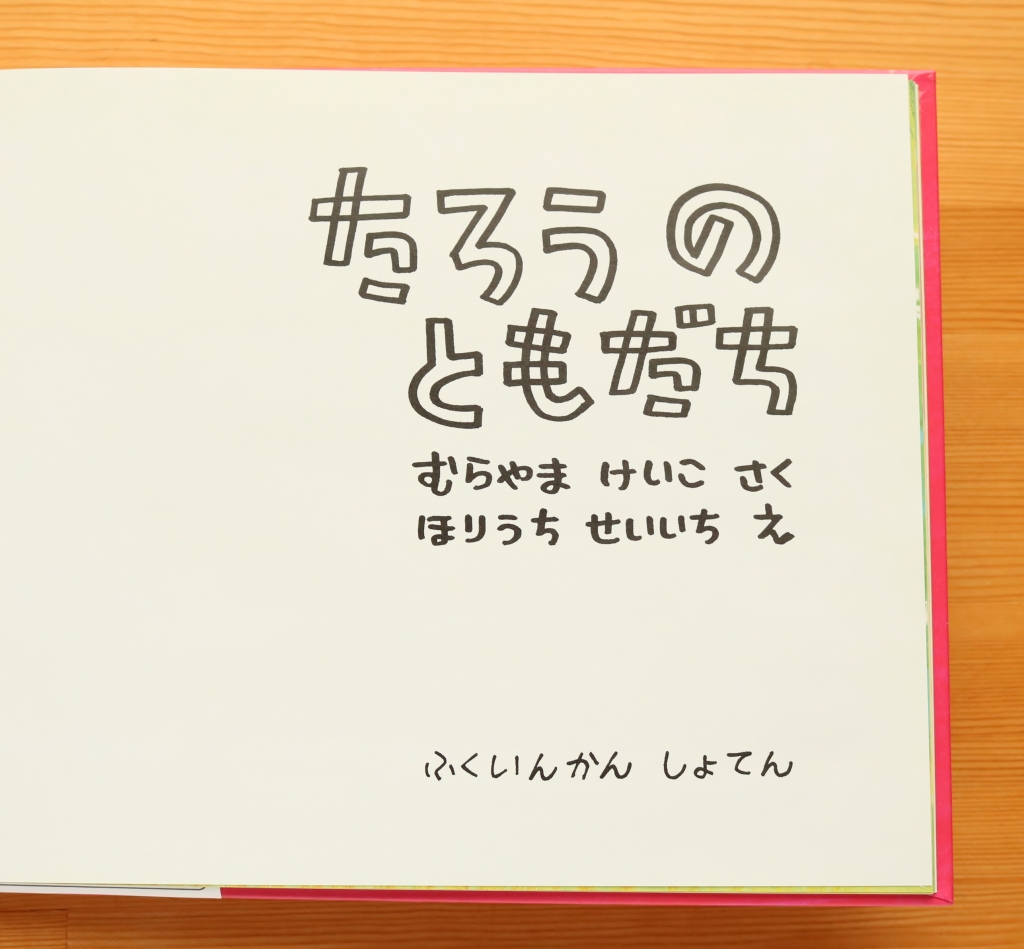 たろう の
ともだち
むらやま けいこ さく
ほりうち せいいち え
ふくいんかん しょてん